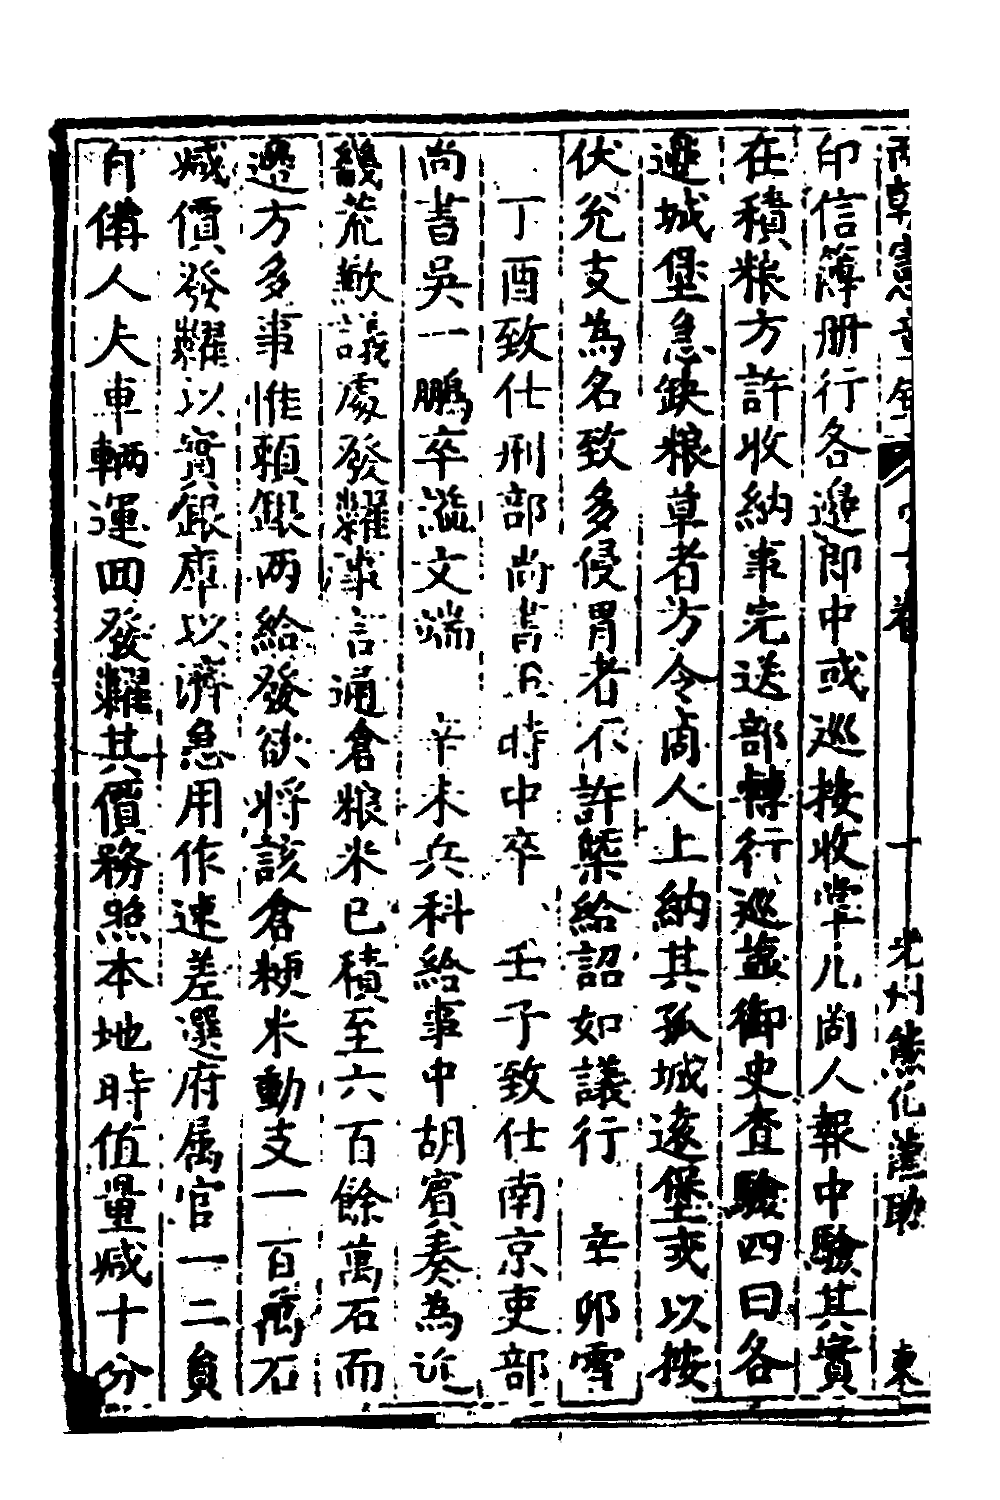 兩朝憲章錄 卷 十 光州熊化漢 助 東
印信簿册行各邊郎中或巡按收掌凡商人報中驗其實
在積粮方許收納事完送部轉行巡鹽御史查驗四曰各
邊城堡急缺粮草者方令商人上納其孤城遠堡夾以按
伏兊支為名致多侵冐者不許槩給詔如議行 辛卯雪
丁酉致仕刑部尚書 時中卒 壬子致仕南京吏部
尚書吳一鵬卒謚文端 辛未兵科給事中胡賔奏為近
畿荒歉議處發糶事言通倉粮米已積至六百餘萬石而
邊方多事惟賴銀两給發欲将該倉粳米動支一百萬石
减價發糶以實銀庫以濟急用作速差選府属官一二員
自僱人夫車輛運回發糶其價務照本地時值量减十分